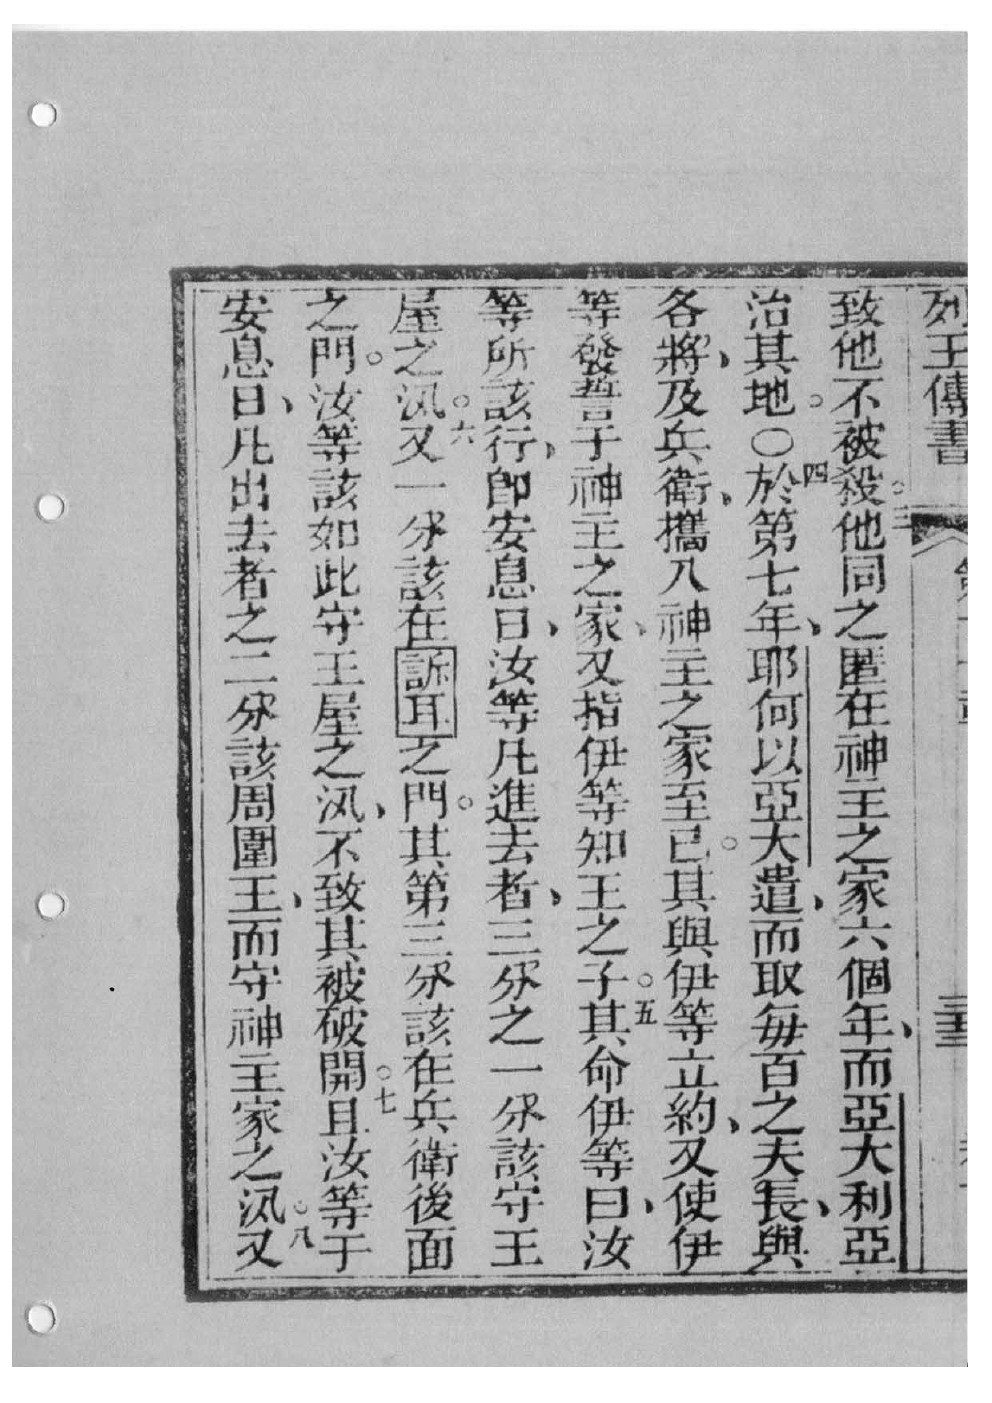 列王傳書
致他不被殺。三他同之匿在神主之家六個年、而亞大利亞
治其地。〇四於第七年、耶何以亞大遣、而取每百之夫長、與
各將、及兵衛、攜入神主之家至已。其與伊等立約、又使伊
等發誓于神主之家、又指伊等知王之子。五其命伊等曰、汝
等所該行、卽安息日、汝等凡進去者、三分之一分該守王
屋之汛。六又一分該在訴耳之門。其第三分該在兵衛後面
之門。汝等該如此守王屋之汛、不致其被破開。七且汝等于
安息日、凡出去者之二分該周圍王、而守神主家之汛。八又